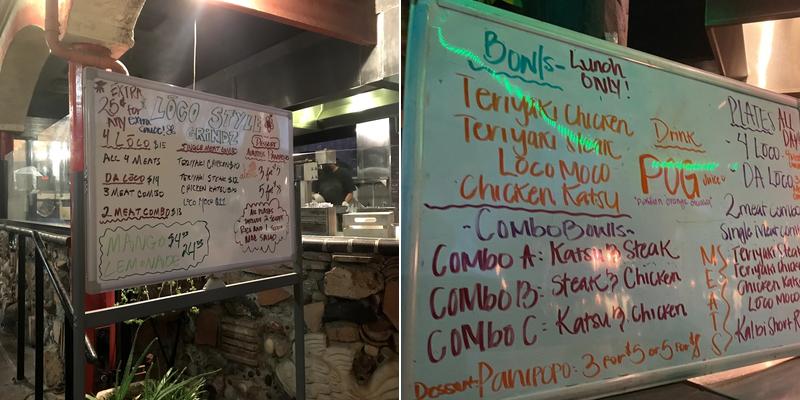 * EXTRA
25¢ for
ANY Extra
Sauce!
LOCO STYLE
GRINDZ
4 LOCO $15
ALL 4 MEATS
DA LOCO $14
3 MEAT COMBO
2 MEAT COMBO $13
SINGLE MEAT COMBO
TERIYAKI CHICKEN $10
TERIYAKI STEAK $12
CHICKEN KATSU $10
LOCO MOCO $11
Dessert
3 for
5 for
ALL PLATES
INCLUDE 2 SCOOPS
RICE AND 1 SCOOP
MAC SALAD
MANGO
LEMONADE
Bowls - Lunch
ONLY!
Teriyaki Chicken
Teriyaki Steak
Loco Moco
Chicken Katsu
- Combo Bowls -
COMBO A: Katsu & Steak
COMBO B: Steak & Chicken
COMBO C: Katsu & Chicken
Dessert - PANIPOPO: 3 for $5 or 5 for
Drink
POG Juice
PLATES ALL
DAY
4 LOCO -
DA LOCO
2 meat combo
Single Meat
MEATS
Teriyaki Steak
Teriyaki
Chicken
Loco Moco
Kalbi Short